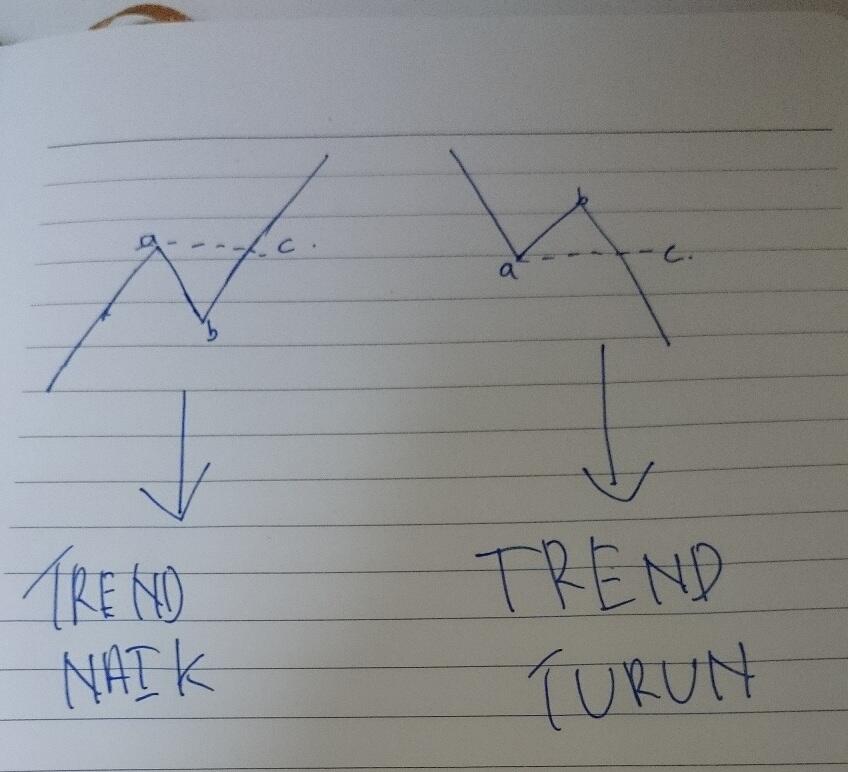 a c.
b
b
a c.
TREND
NAIK
TREND
TURUN